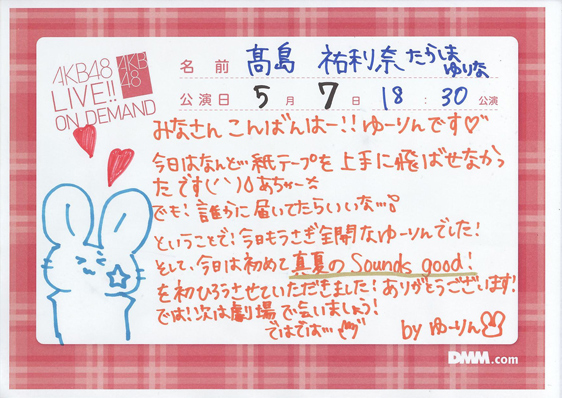 AKB48
LIVE!!
ON DEMAND
AKB
48
名前 髙島 祐利奈 たかしま
ゆりな
公演日 5月 7日 18:30 公演
みなさん こんばんはー!! ゆーりんです♡
今日はなんと…紙テープを上手に飛ばせなかっ
たです(´`)δ あちゃー☆
でも! 誰かに届いてたらいいな…♪
ということで! 今日もうさぎ全開なゆーりんでした!
そして、今日は初めて真夏のSounds good!
を初ひろうさせていただきました! ありがとうございます!
では! 次は劇場で会いましょう!
ではでは…
by ゆーりん
DMM.com